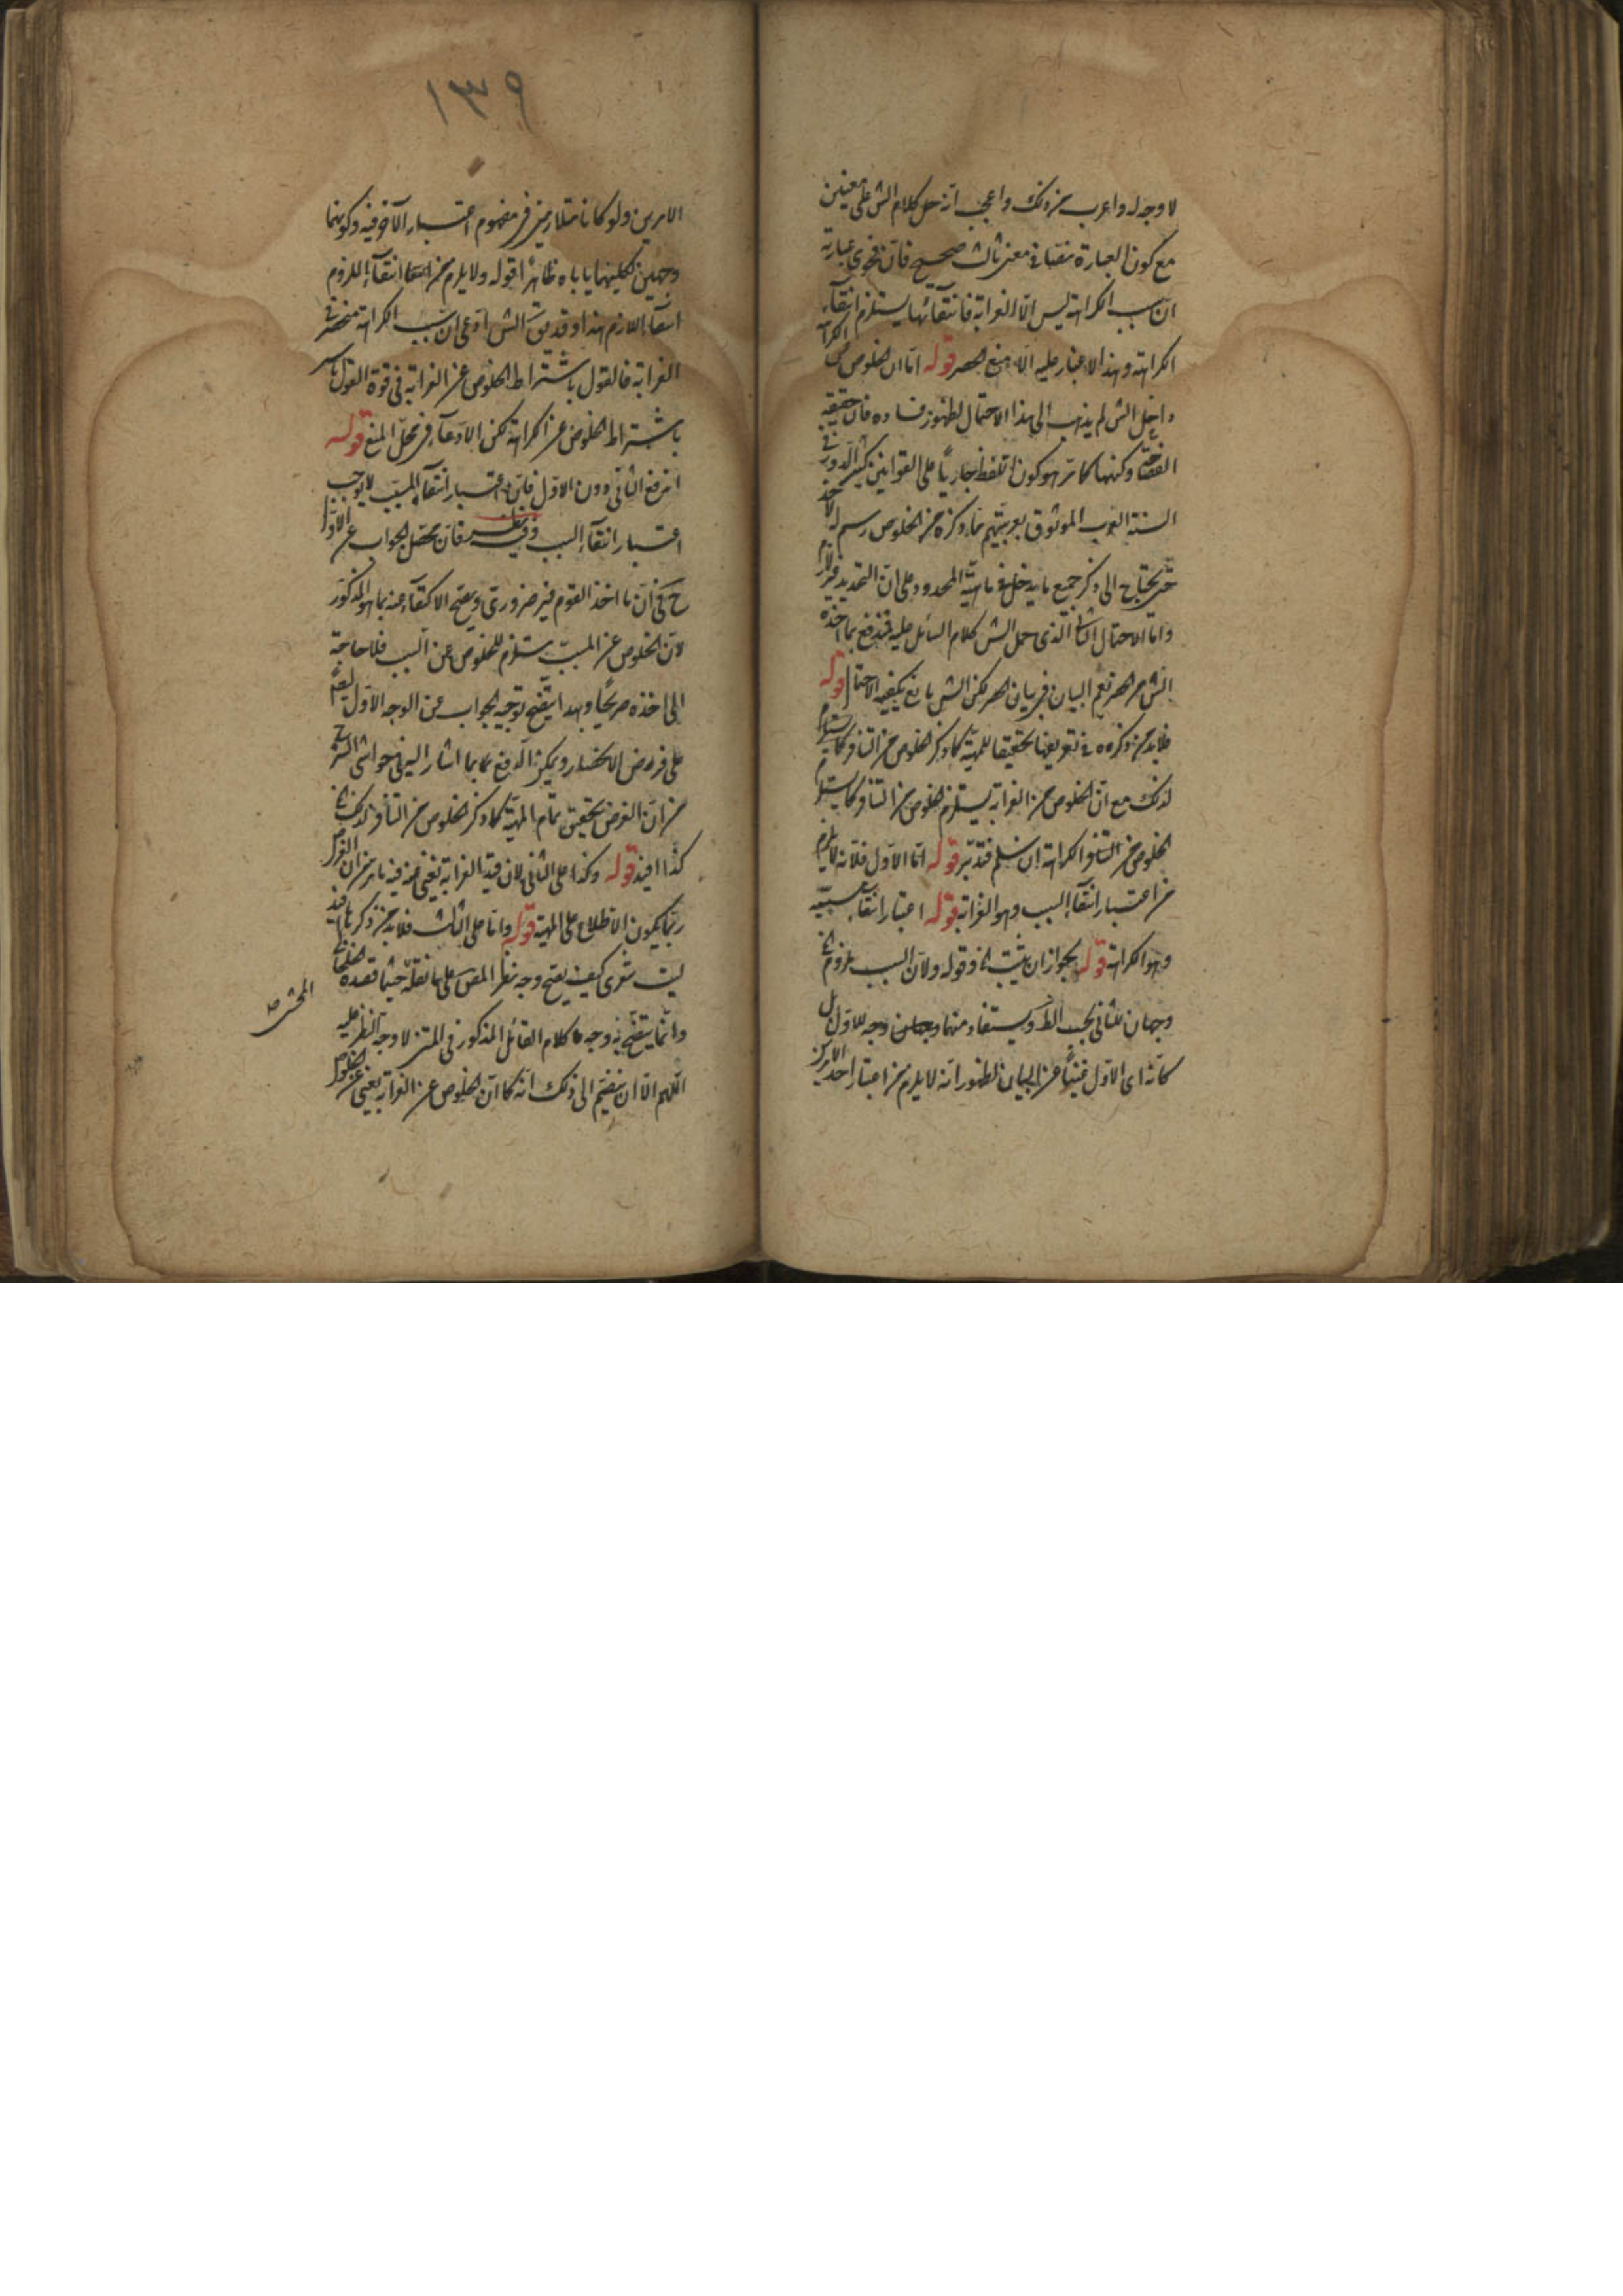 لا وجه له واغرب من ذلك واعجب انه حمل كلام الش على معنيين
مع كون العبارة نصا في معنى ثالث صحيح فان فحوى عبارته
ان سبب الكراهة ليس الا الغرابة فانتفائها يستلزم انتفاء
الكراهة وهذا لا غبار عليه الا منع الحصر قوله اما ان الخلوص
الش لم يذهب الى هذا الاحتمال لظهور فساده فان حقيقة
الفصاحة وكنهها كما مر هو كون اللفظ جاريا على القوانين كثير الدور في
السنة العرب الموثوق بعربيتهم فما ذكره من الخلوص رسم له
حتى يحتاج الى ذكر جميع ما يدخل في ماهية المحدود وعلى ان التحديد غير لازم
واما الاحتمال الثاني الذي حمل الش كلام السائل عليه فيندفع بما اخذه
الش من الحصر نعم البيان في بيان الحصر لكن الش مانع يكفيه الاحتمال قوله
فلا بد من ذكره في تعريفها تحقيقا للمهية كما ذكر الخلوص من التنافر
لذلك مع ان الخلوص من الغرابة يستلزم الخلوص من التنافر كما يستلزم
الخلوص من التنافر الكراهة ان سلم فتدبر قوله اما الاول فلانه لا يلزم
من اعتبار انتفاء السبب وهو الغرابة قوله اعتبار انتفاء مسببه
وهو الكراهة قوله لجواز ان يثبت وقوله ولان السبب ملزوم
وجهان للثاني بحسب الظ ويستفاد منهما وجهان وجه للاول بل
كانه اى الاول غنيا عن البيان لظهور انه لا يلزم من اعتبار احد الامرين
١٣٩
الامرين ولو كانا متلازمين في مفهوم اعتبار الآخر فيه وكونهما
وجهين لكليهما ياباه ظاهرا قوله ولا يلزم من انتفاء الملزوم
انتفاء اللازم هذا وقد يق الش ادعى ان سبب الكراهة منحصر في
الغرابة فالقول باشتراط الخلوص عن الغرابة في قوة القول
باشتراط الخلوص عن الكراهة لكن الادعاء في محل المنع قوله
اندفع الثاني دون الاول فان اعتبار انتفاء المسبب لا يوجب
اعتبار انتفاء السبب وفيه نظر فان محصل الجواب عن الاول
ح في ان ما اخذ القوم غير ضرورى ويصح الاكتفاء عنه بما هو المذكور
لان الخلوص عن المسبب يستلزم للخلوص عن السبب فلا حاجة
الى اخذه صريحا وبهذا يتضح توجيه الجواب عن الوجه الاول ايضا
على فرض الانحصار ويمكن الدفع بما اشار اليه في حواشي الشرح
من ان الغرض تحقيق تمام المهية كما ذكر الخلوص من التنافر لذلك
كذا افيد قوله وكذا على الثاني لان قيد الغرابة تغني عنه فيه ما مر من ان الغرض
ربما يكون الاطلاع على المهية قوله واما على الثالث فلا بد من ذكرها
ليت شعري كيف يصح وجه نظر المص على ما نقله حيثما قصده
وانما يتضح وجه كلام القائل المذكور في المتن لا وجه النظر عليه
اللهم الا ان ينضم الى ذلك انه كما ان الخلوص عن الغرابة يغني عن الخلوص
المحشى